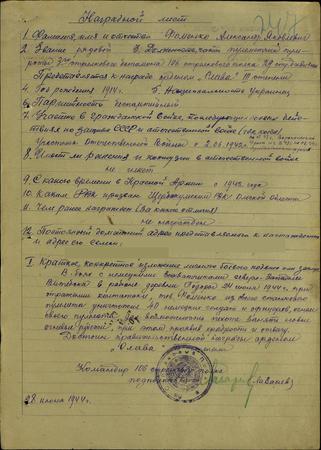 Наградной лист
1. Фамилия, имя и отчество Фоменко Александр Яковлевич
2. Звание рядовой 3. Должность, часть пулеметчик
3го стрелкового батальона 106 стрелкового полка 29 стр дивизии
Представляется к награде орденом "Слава" III степени
4. Год рождения 1914г. 5. Национальность Украинец
6. Партийность беспартийный
7. Участие в гражданской войне, последующих боевых дейст-
виях по защите СССР и отечественной войне (где, когда)
Участник Отечественной Войны с 2.06.1943г.
8. Имеет ли ранения и контузии в отечественной войне
не имеет
9. С какого времени в Красной Армии с 1943 года
10. Каким РВК призван РВК Омской области
11. Чем ранее награжден (за какие отличия)
не награжден
12. Постоянный домашний адрес представляемого к награждению
и адрес его семьи:
I. Краткое, конкретное изложение личного боевого подвига или заслуг
В боях с немецкими захватчиками северо-западнее
Витебска в районе деревни 24 июня 1944г. при
отражении контратаки, тов. Фоменко из своего станкового
пулемета уничтожил 40 немецких солдат и офицеров, огнем
своего пулемета дал возможность пехоте занять
при этом проявил храбрость и отвагу.
Достоин правительственной награды орденом
"Слава" степени
Командир 106 стрелкового полка
подполковник
28 июня 1944г.